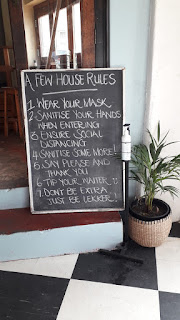 A FEW HOUSE RULES
1. WEAR YOUR MASK
2. SANITISE YOUR HANDS
WHEN ENTERING
3. ENSURE SOCIAL
DISTANCING
4. SANITISE SOME MORE!
5. SAY PLEASE AND
THANK YOU
6. TIP YOUR WAITER :)
7. DON'T BE EXTRA
JUST BE LEKKER!